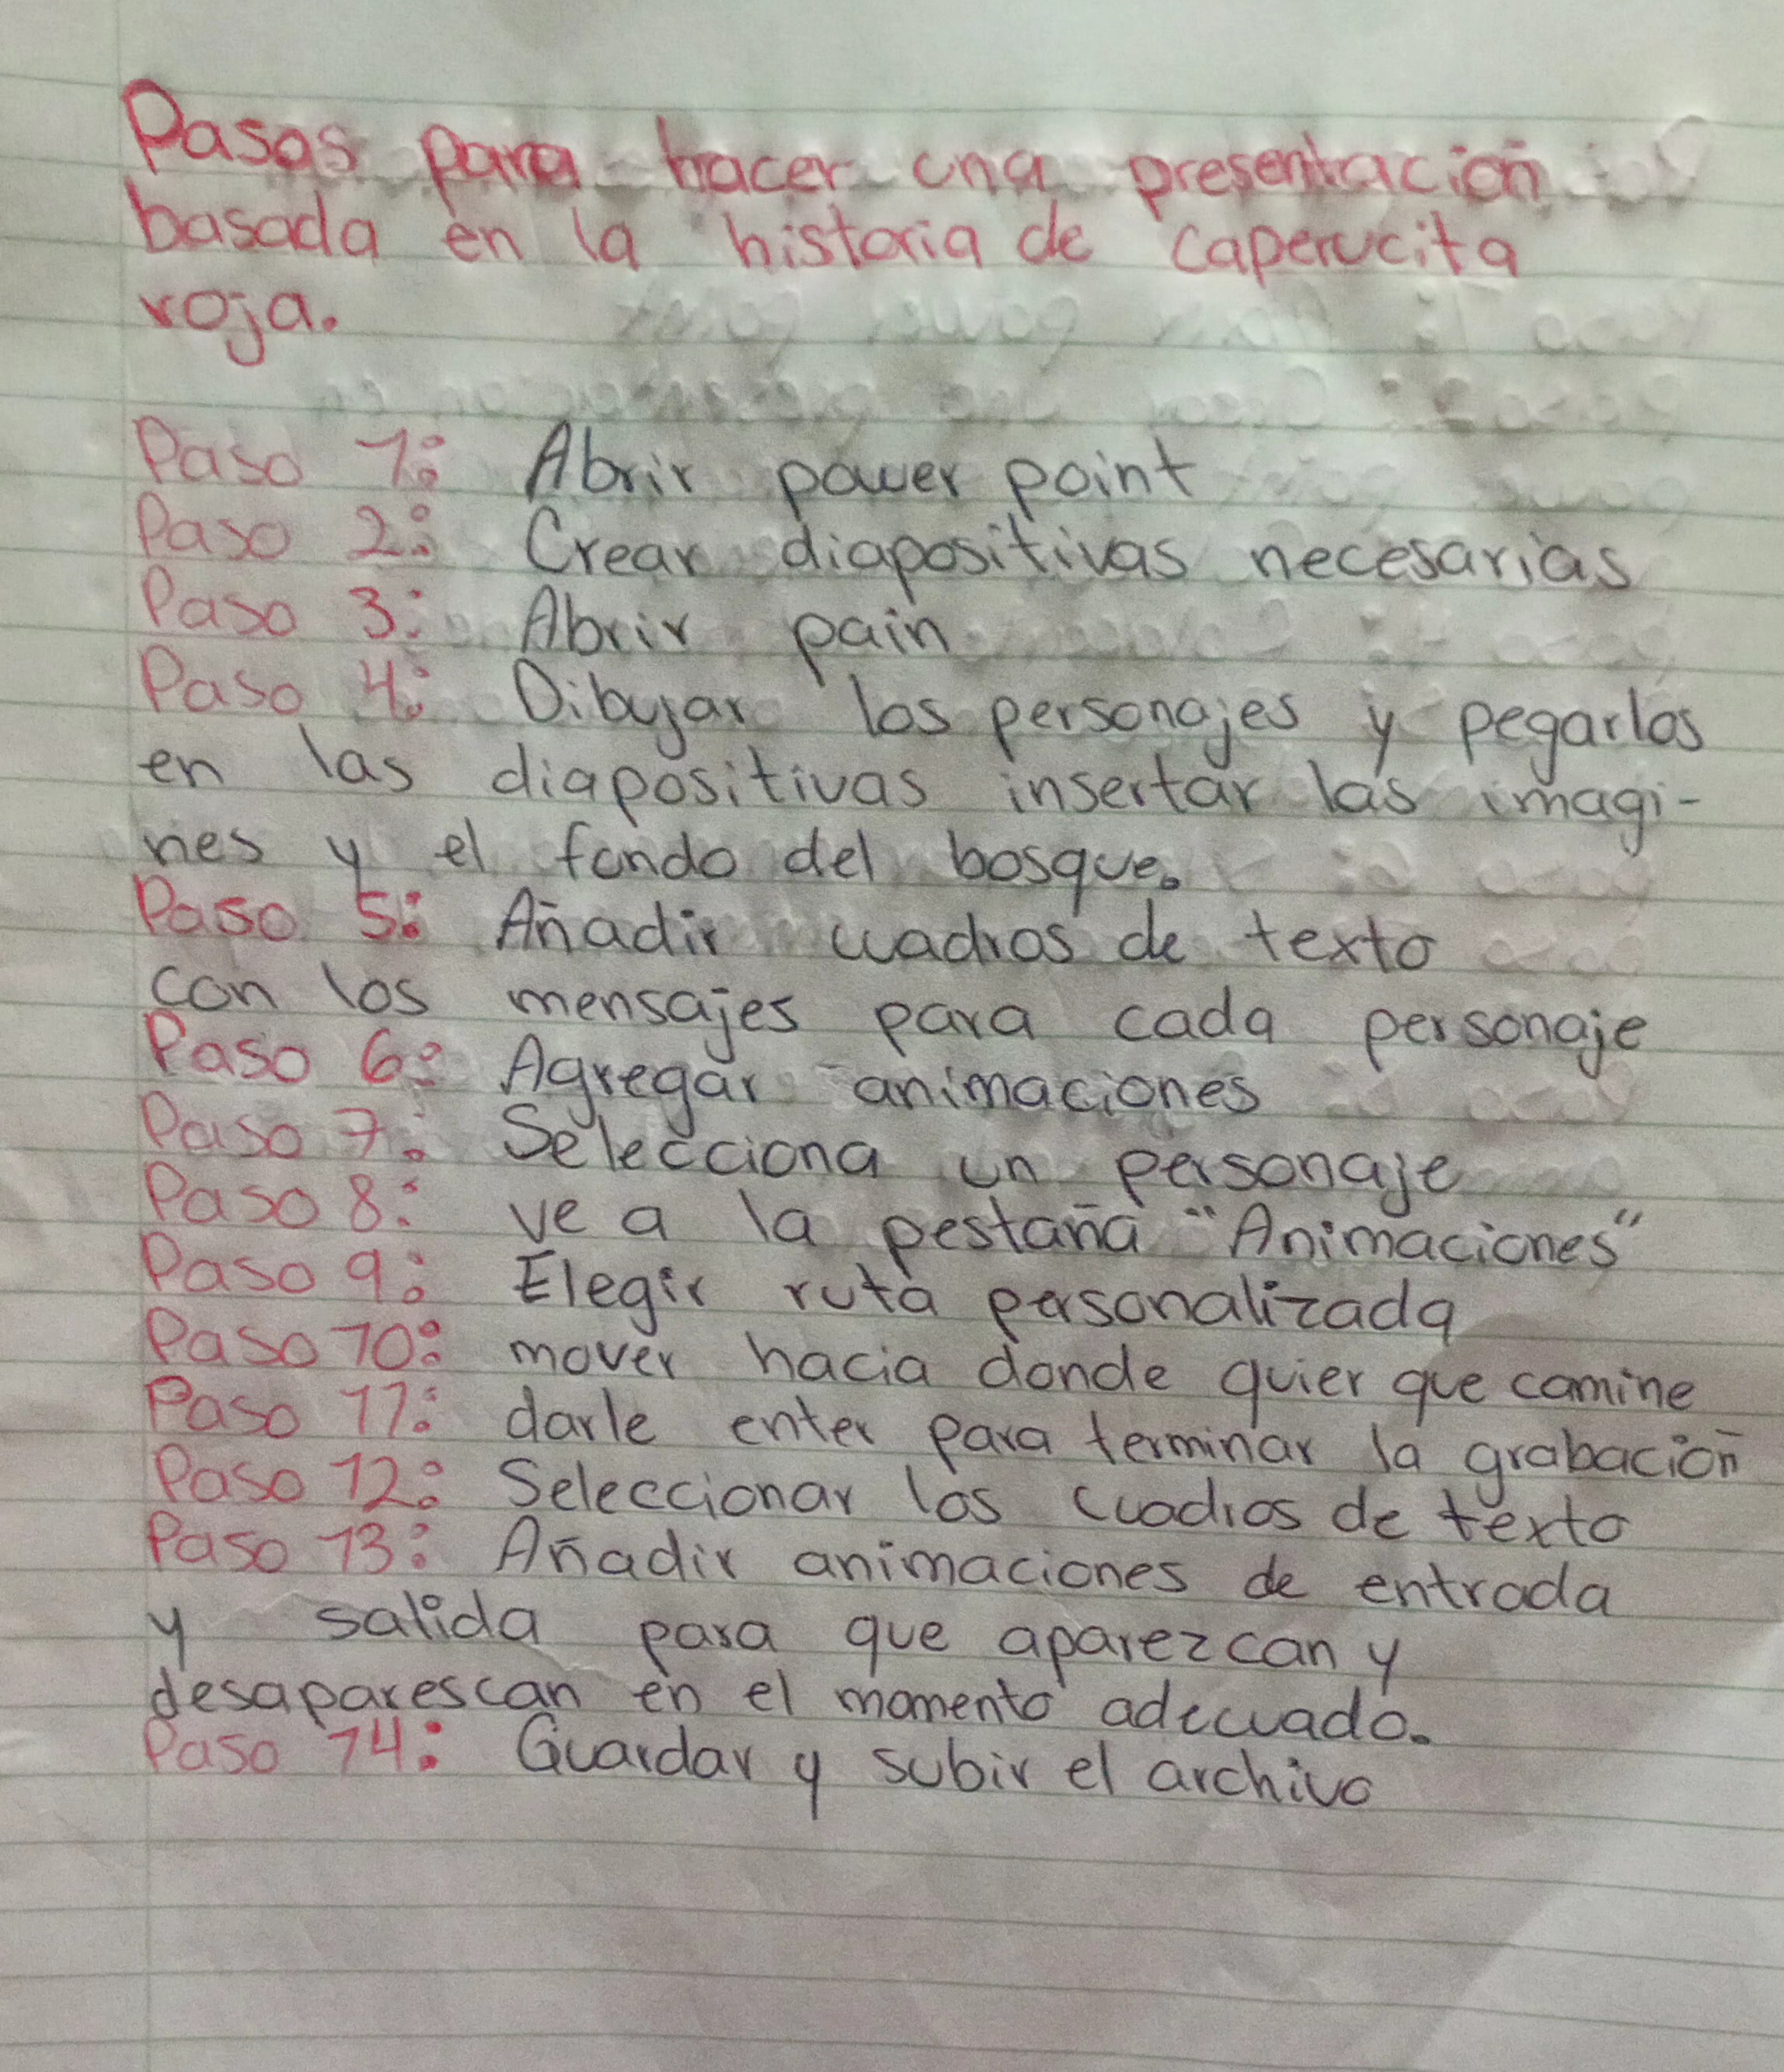 Pasos para hacer una presentación
basada en la historia de caperucita
roja.
Paso 1: Abrir power point
Paso 2: Crear diapositivas necesarias
Paso 3: Abrir pain
Paso 4: Dibujar los personajes y pegarlos
en las diapositivas insertar las imagi-
nes y el fondo del bosque.
Paso 5: Añadir cuadros de texto
con los mensajes para cada personaje
Paso 6: Agregar animaciones
Paso 7: Selecciona un personaje
Paso 8: ve a la pestaña "Animaciones"
Paso 9: Elegir ruta personalizada
Paso 10: mover hacia donde quier que camine
Paso 11: darle enter para terminar la grabación
Paso 12: Seleccionar los cuadros de texto
Paso 13: Añadir animaciones de entrada
y salida para que aparezcan y
desaparescan en el momento adecuado.
Paso 14: Guardar y subir el archivo